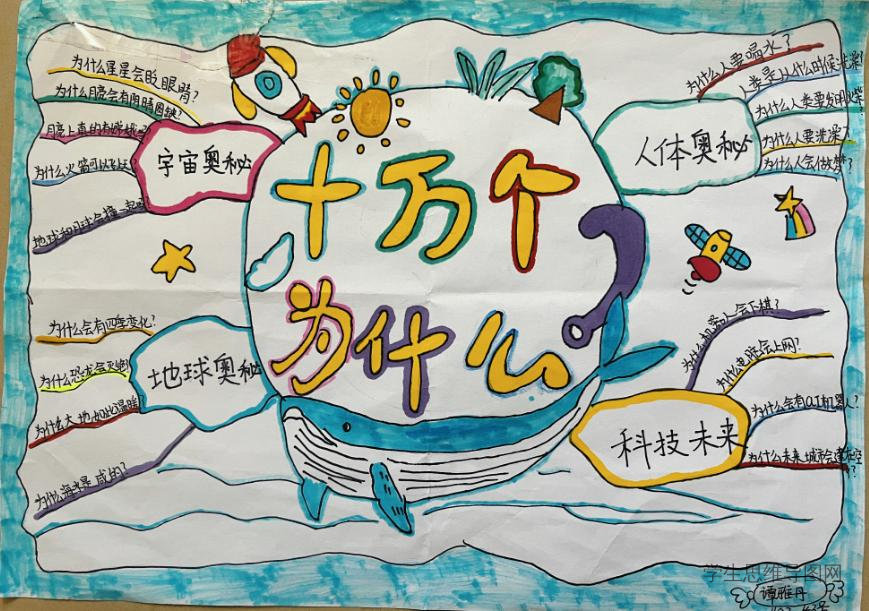 十万个
为什么
宇宙奥秘
为什么星星会眨眼睛?
为什么月亮会有阴晴圆缺?
月亮上真的有嫦娥
为什么火箭可以
地球和月球会撞一起
地球奥秘
为什么会有四季变化?
为什么恐龙会灭绝
为什么大地如此温暖?
为什么海水是咸的?
人体奥秘
为什么人要喝水?
人类是从什么时候洗澡
为什么人类要发明火柴?
为什么人要洗澡?
为什么人会做梦?
科技未来
为什么机器人会下棋?
为什么电脑会上网?
为什么会有机器人?
为什么未来城市会建在空
学生思维导图网
谭雅丹